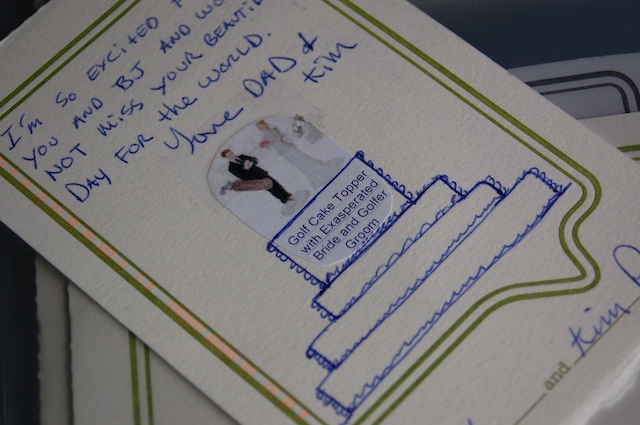 I'M SO EXCITED
YOU AND BJ AND
NOT MISS YOUR BEAUTI
DAY FOR THE WORLD.
Love DAD &
KIM
Golf Cake Topper
with Exasperated
Bride and Golfer
Groom
and Kim